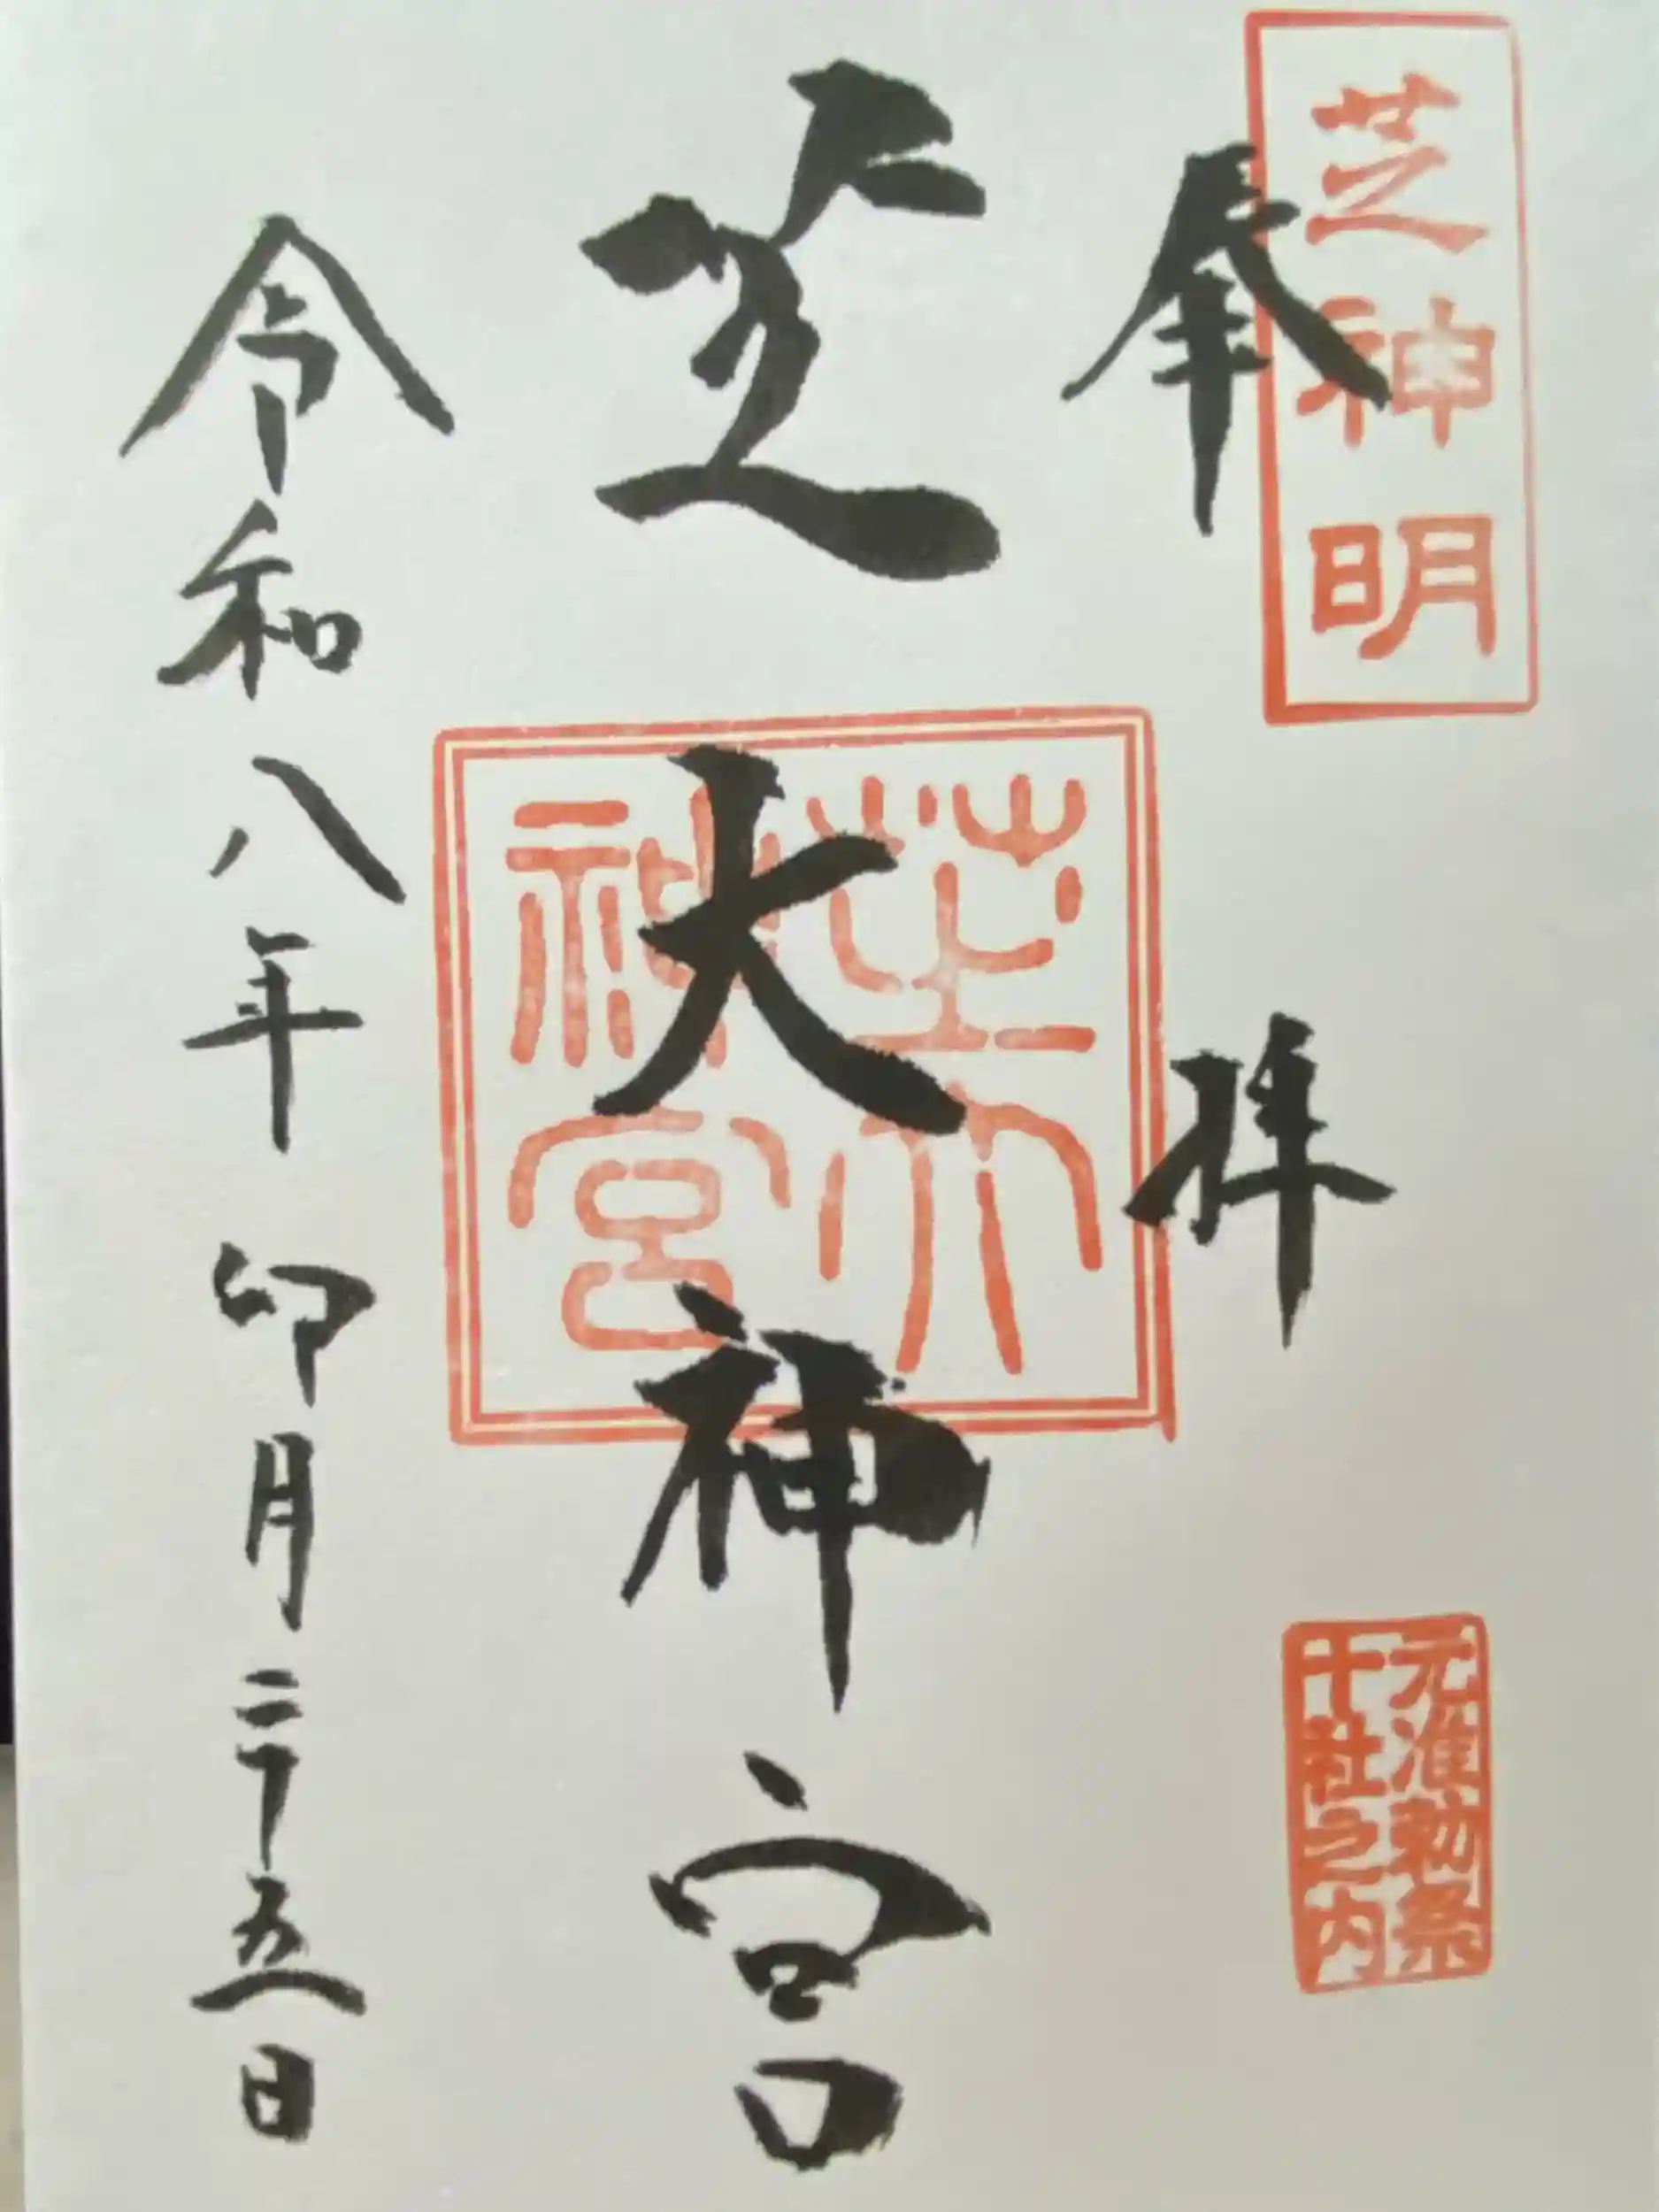 芝神明
奉拝
元准勅祭
十社之内
芝大神宮
芝大
神宮
令和八年卯月二十五日